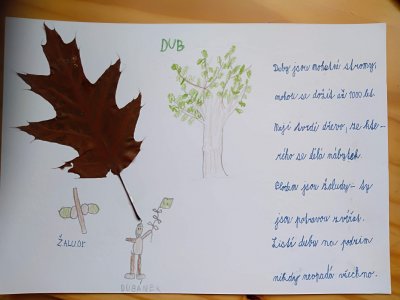 DUB
Duby jsou mohutné stromy,
mohou se dožít až 1000 let.
Mají tvrdé dřevo, ze kte-
rého se dělá nábytek.
Plodem jsou žaludy - ty
jsou potravou zvířat.
Listí dubu na podzim
nikdy neopadá všechno.
ŽALUDY
DUBÁNEK